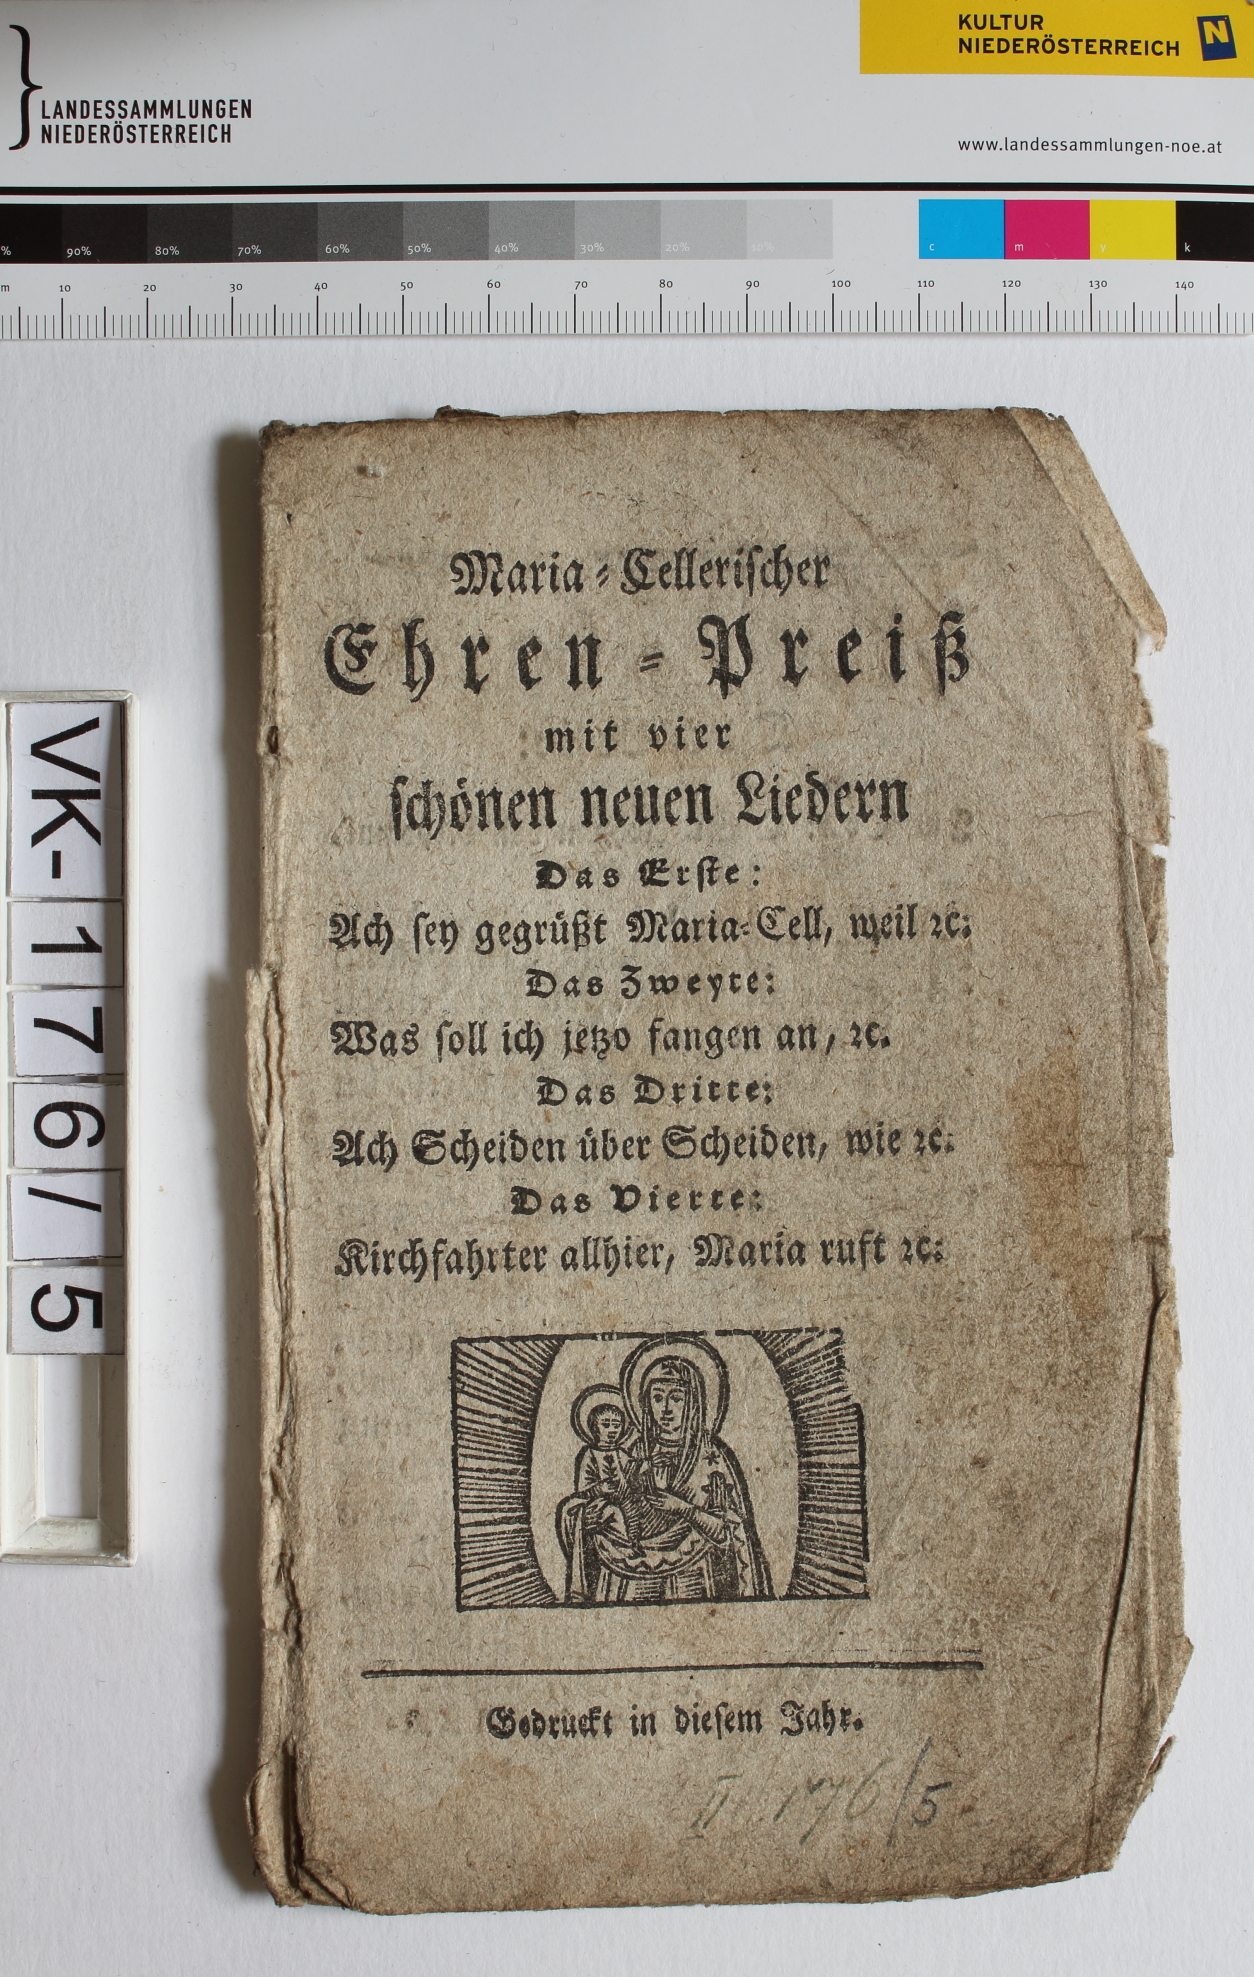 KULTUR
NIEDERÖSTERREICH
N
LANDESSAMMLUNGEN
NIEDERÖSTERREICH
www.landessammlungen-noe.at
% 90% 80% 70% 60% 50% 40% 30% 20% 10% c m y k
m 10 20 30 40 50 60 70 80 90 100 110 120 130 140
VK-176/5
Maria=Cellerischer
Ehren=Preiß
mit vier
schönen neuen Liedern
Das Erste:
Ach sey gegrüßt Maria=Cell, weil ꝛc:
Das Zweyte:
Was soll ich jetzo fangen an, ꝛc.
Das Dritte:
Ach Scheiden über Scheiden, wie ꝛc:
Das Vierte:
Kirchfahrter allhier, Maria ruft ꝛc:
Gedruckt in diesem Jahr.
II 176/5